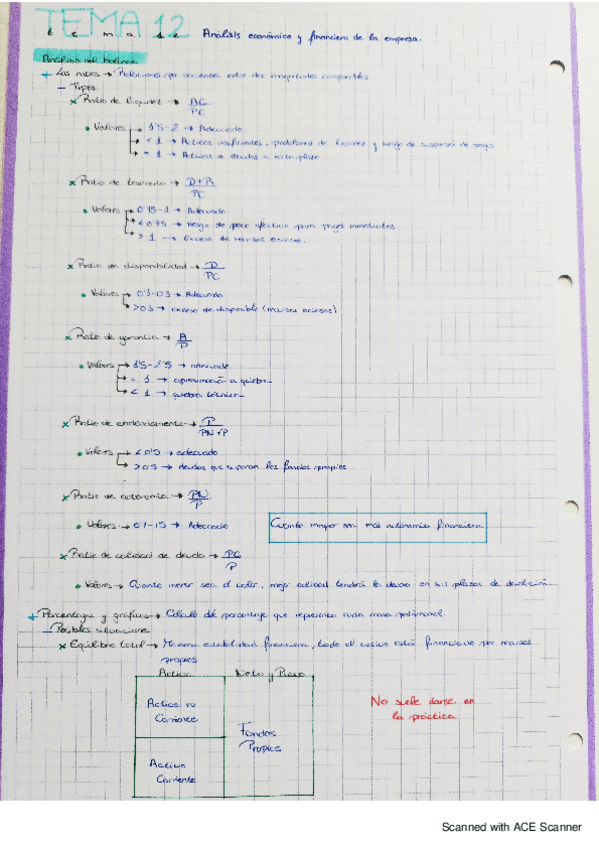 TEMA 12
tema 12 Análisis económico y financiero de la empresa.
Análisis del balance
+ Los ratios → Relaciones por cocientes entre dos magnitudes comparables
– Tipos
× Ratio de liquidez → AC
PC
• Valores → 1'5-2 → Adecuado
→ < 1 → Activos insuficientes, problemas de liquidez y riesgo de suspensión de pagos
→ = 1 → Activos = deudas a corto plazo
× Ratio de tesorería → D+R
PC
• Valores → 0'75-1 → Adecuado
→ < 0'75 → riesgo de poco efectivo para pagos inmediatos
→ > 1 → Exceso de recursos ociosos.
× Ratio de disponibilidad → D
PC
• Valores → 0'1-0'3 → Adecuado
→ >0'3 → exceso de disponible (recursos ociosos)
× Ratio de garantía → A
P
• Valores → 1'5-2'5 → adecuado
→ = 1 → aproximación a quiebra
→ < 1 → quiebra técnica.
× Ratio de endeudamiento → P
PN+P
• Valores → <0'5 → adecuado
→ >0'5 → deudas que superan los fondos propios
× Ratio de autonomía → PN
P
• Valores → → Adecuado
Cuanto mayor sea más autonomía financiera
× Ratio de calidad de deuda → PC
P
• Valores → Cuanto menor sea el valor, mejor calidad tendrá la deuda en sus plazos de devolución.
+ Porcentajes y gráficos → Cálculo del porcentaje que representa cada masa patrimonial.
– Posibles situaciones
× Equilibrio total → Máxima estabilidad financiera, todo el activo está financiado por recursos
propios
Activo Neto y Pasivo
Activo no
Corriente
Fondos
Propios
Activo
Corriente
No suele darse en
la práctica
Scanned with ACE Scanner